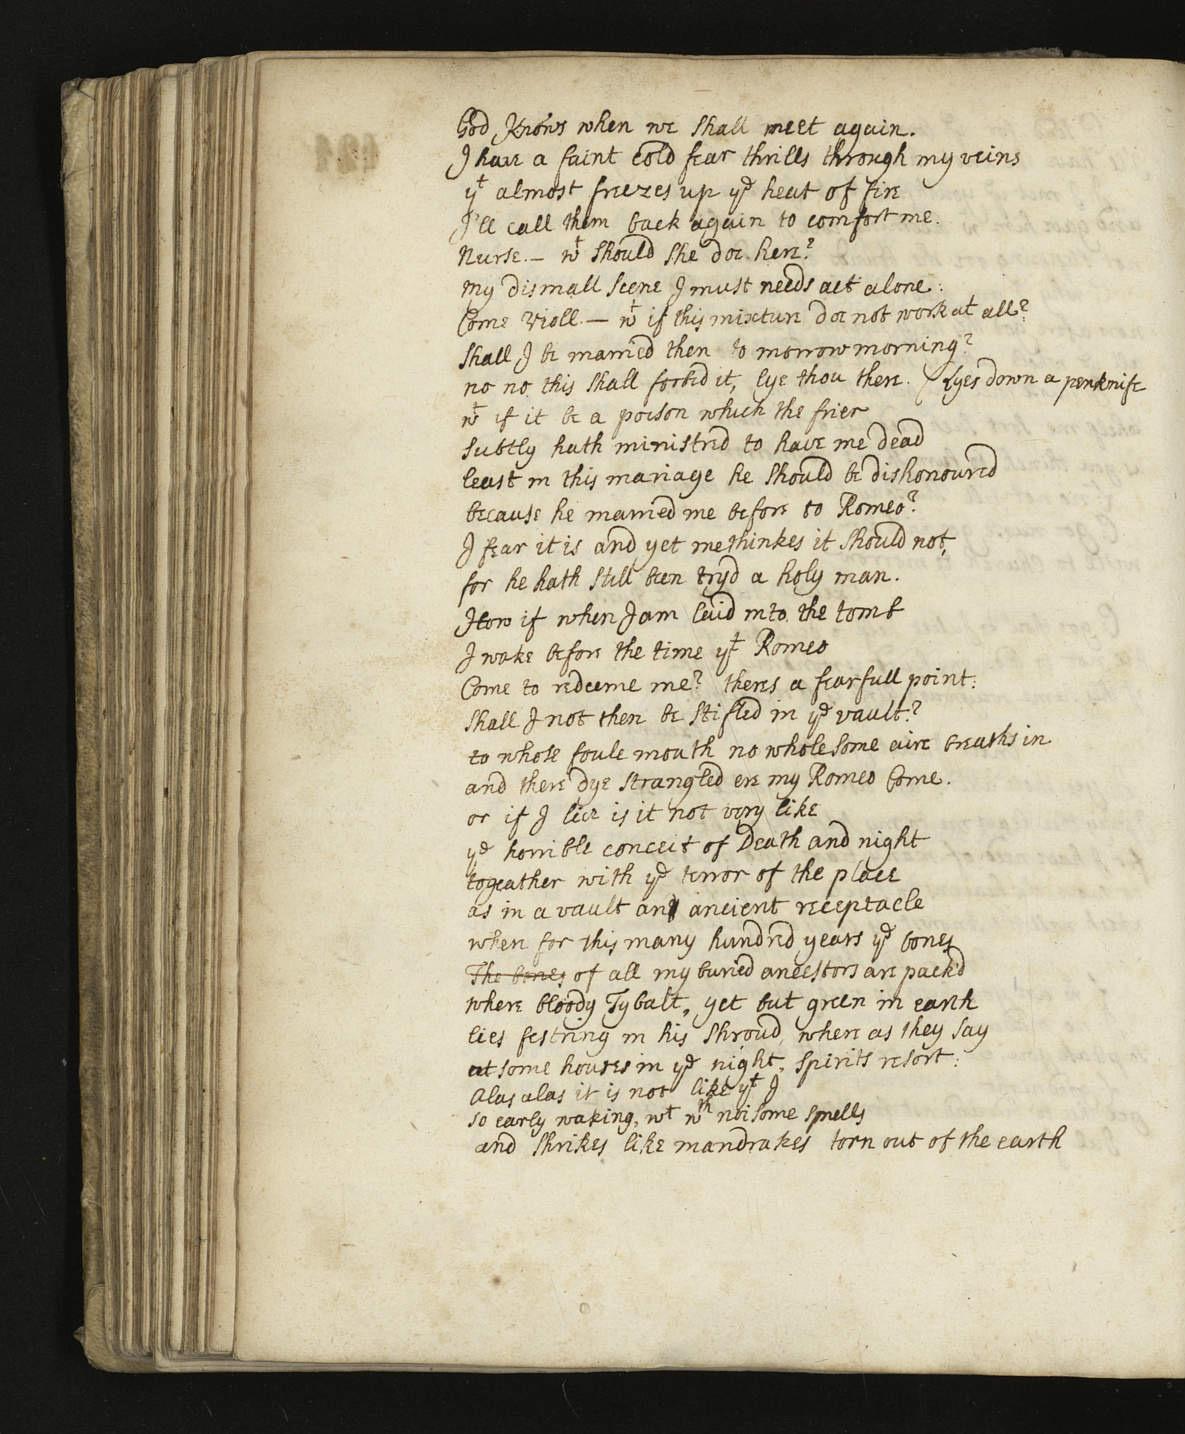 God Knows when we shall meet again.
I haue a faint cold fear thrills through my veins
yt almost freezes up ye heat of fire
I'll call them back again to comfort me.
Nurse. — wt should she doe here?
my dismall scene I must needs act alone:
Come Violl. — wt if this mixture doe not work at all?
shall I be married then to morrow morning?
no no this shall forbid it, lye thou there. (lyes down a penknife
wt if it be a poison which the frier
subtly hath ministred to haue me dead
least in this mariage he should be dishonoured
because he married me before to Romeo?
I fear it is and yet methinkes it should not,
for he hath still been tryd a holy man.
How if when I am laid into the tomb
I wake before the time yt Romeo
Come to redeeme me? theres a fearfull point:
shall I not then be stifled in ye vault?
to whose foule mouth no wholesome aire breaths in
and there dye strangled ere my Romeo Come.
or if I liue is it not very like
ye horrible conceit of Death and night
togeather with ye terror of the place
as in a vault an ancient receptacle
when for this many hundred years ye bones
The bones of all my buried ancestors are pack'd
where bloody Tybalt, yet but green in earth
lies festring in his shroud, where as they say
at some houres in ye night, spirits resort:
Alas alas it is not like yt I
so early waking, wt wth noisome smells
and shrikes like mandrakes torn out of the earth